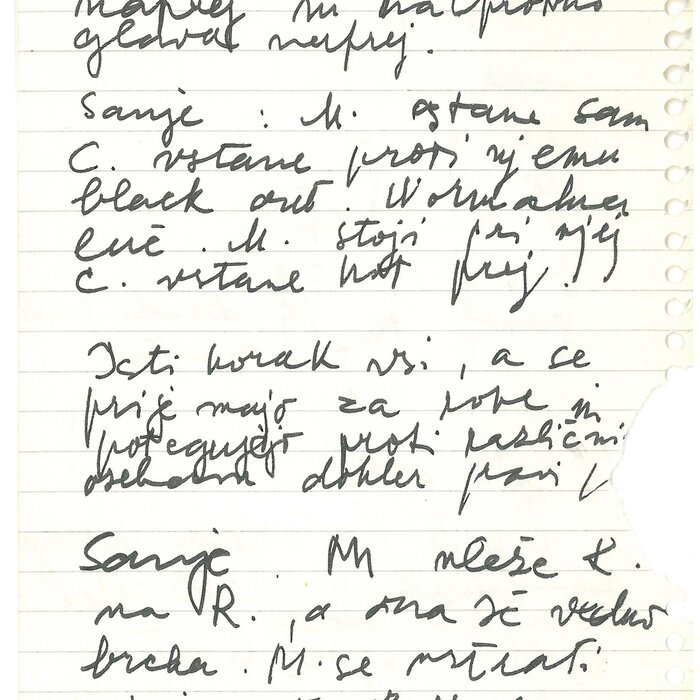 naprej in
glava naprej.
Sanje : M. ostane sam
C. vstane proti njemu
black out. Normalna
luč. M. stoji pri njej
C. vstane kot prej.
Isti korak vsi, a se
prijemajo za roke in
potegujejo proti različni
osebam dokler pravi
Sanje. M vleže R.
na R., a ona še vedno
brcka. M. se